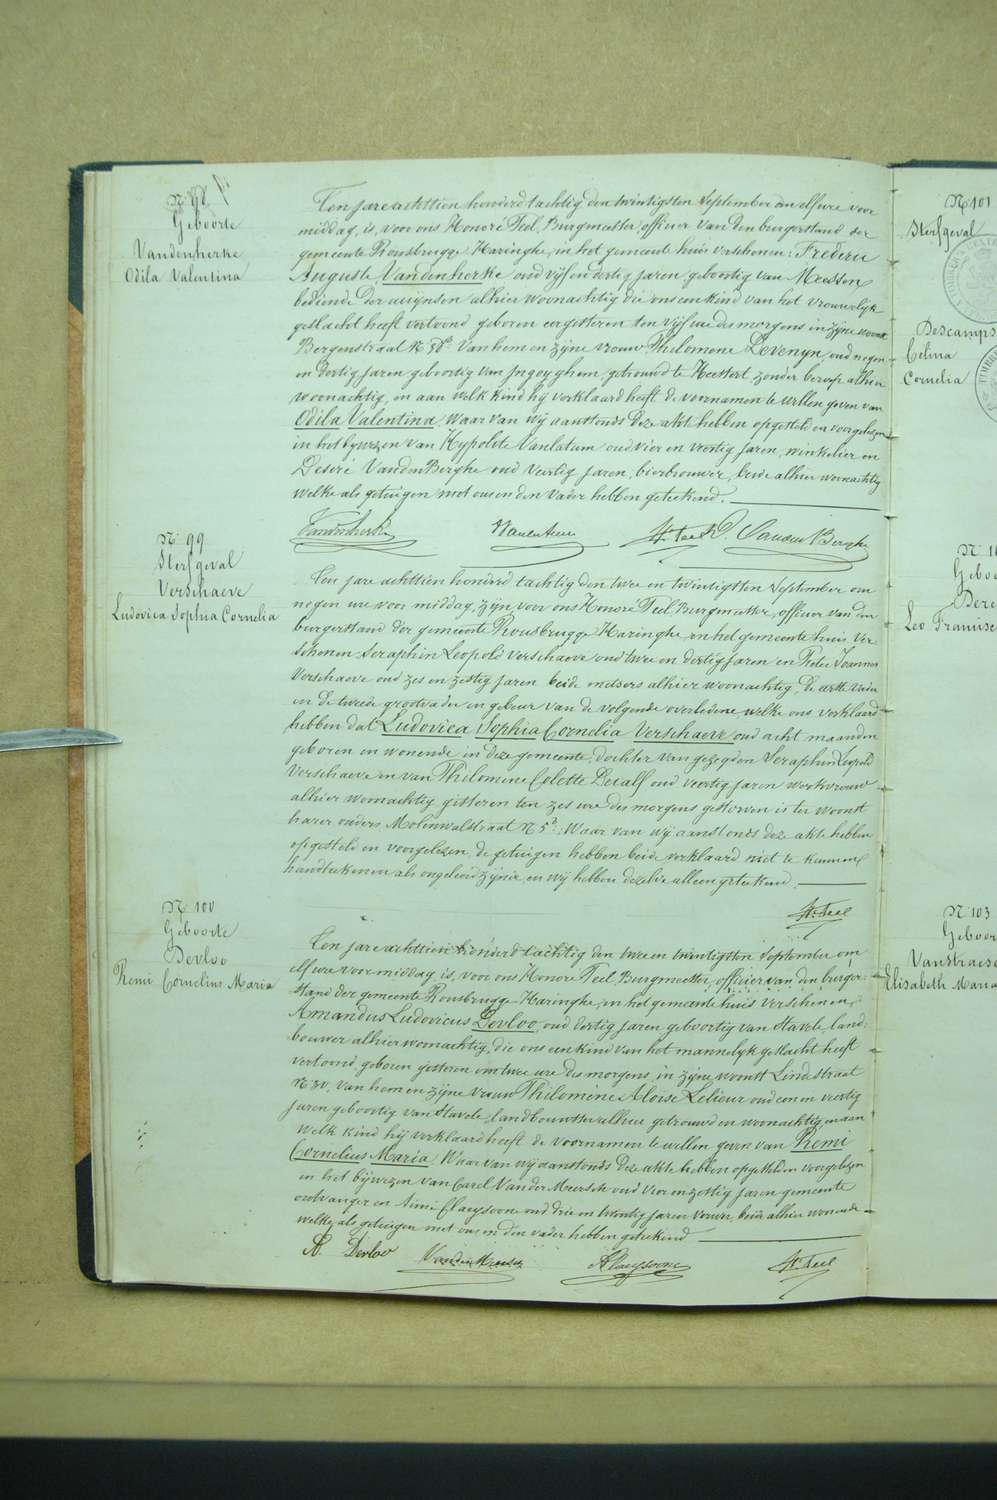 N 98
Geboorte
Vandenherke
Odila Valentina
Ten jare achttien honderd tachtig den twintigsten September om elf ure voor
middag, is, voor ons Honoré Teel, Burgmeester, officier van den burgerstand der
gemeente Rousbrugge-Haringhe, in het gemeente huis verschenen: Frederic
Auguste Vandenherke oud vijf en dertig jaren geboortig van Meessen
bediende der accijnsen alhier woonachtig die ons een kind van het vrouwelijk
geslacht heeft vertoond geboren eergisteren ten vijf ure des morgens in zijne woonst
Bergenstraat N van hem en zijne vrouw Philomene Levenyn, oud negen
en dertig jaren geboortig van Ingoyghem, getrouwd te Heestert, zonder beroep alhier
woonachtig, en aan welk kind hij verklaard heeft de voornamen te willen geven van
Odila Valentina. Waar van wij aanstonds deze akt hebben opgesteld en voorgelezen
in het bijwezen van Hypolite Vanlatum oud vier en veertig jaren, winkelier en
Desiré VandenBerghe oud veertig jaren, bierbrouwer, beide alhier woonachtig
welke als getuigen met ons en den vader hebben geteekend.
Vandenherke Vanlatum Hr Teel D. VandenBerghe
N 99
Sterfgeval
Verschaeve
Ludovica Sophia Cornelia
Ten jare achttien honderd tachtig den twee en twintigsten September om
negen ure voor middag, zijn, voor ons Honoré Teel Burgmeester, officier van den
burgerstand der gemeente Rousbrugge-Haringhe, in het gemeente huis ver-
schenen Seraphin Leopold Verschaeve oud twee en dertig jaren en Pieter Joannes
Verschaeve oud zes en zestig jaren beide metsers alhier woonachtig, de eerste vader
en de tweede grootvader en gebuur van de volgende overledene, welke ons verklaard
hebben dat Ludovica Sophia Cornelia Verschaeve oud acht maanden
geboren en wonende in deze gemeente, dochter van gezegden Seraphin Leopold
Verschaeve en van Philomene Colette Decalf oud veertig jaren werkvrouw
alhier woonachtig gisteren ten zes ure des morgens gestorven is ter woonst
harer ouders, Molenwalstraat N 5. Waar van wij aanstonds deze akte hebben
opgesteld en voorgelezen, de getuigen hebben beide verklaard niet te kunnen
handteekenen als ongeleerd zijnde, en wij hebben dezelve alleen geteekend.
Hr Teel
N 100
Geboorte
Devloo
Remi Cornelius Maria
Ten jare achttien honderd tachtig den twee en twintigsten September om
elf ure voor middag is, voor ons Honoré Teel Burgmeester, officier van den burger-
stand der gemeente Rousbrugge-Haringhe, in het gemeente huis verschenen,
Amandus Ludovicus Devloo, oud dertig jaren geboortig van Stavele, land-
bouwer alhier woonachtig, die ons een kind van het mannelyk geslacht heeft
vertoond, geboren gisteren om twee ure des morgens, in zijne woonst Lindestraat
N 20, van hem en zijne vrouw Philomene Aloise Lelieur oud een en veertig
jaren geboortig van Stavele, landbouwster alhier getrouwd en woonachtig, en aan
welk kind hij verklaard heeft de voornamen te willen geven van Remi
Cornelius Maria. Waar van wij aanstonds deze akte hebben opgesteld en voorgelezen
in het bijwezen van Carel Van der Meersch oud vier en zestig jaren gemeente
ontvanger en Aimé Claeysoone oud drie en twintig jaren, beide alhier wonende
welke als getuigen met ons en den vader hebben geteekend
A. Devloo VanderMeersch A Claeysoone Hr Teel
N 101
Sterfgeval
Descamps
Celina
Cornelia
N 10
Geboo
Dere
Leo Francisc
N 103
Geboor
Vanstraese
Elisabeth Maria